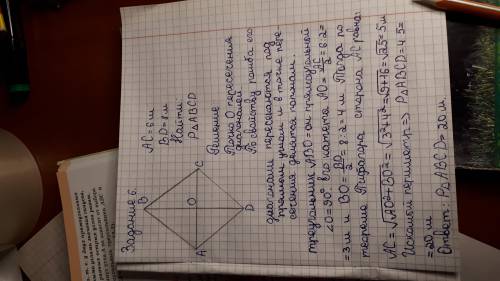 Задание 6.
AC=6м
BD=8м
Найти:
P△ABCD
B
C
O
A
D
Решение
Точка О пересечения
диагоналей
По свойству ромба его
диагонали пересекаются под
прямым углом и в точке пере-
сечения делятся попалам.
треугольник ABO=он прямоугольный
∠O=90° его катета AO=AC/2=6:2=
=3м и BO=BD/2=8:2=4м Тогда по
теореме Пифагора сторона AC равна:
AC=√AO²+BO²=√3²+4²=√9+16=√25=5м
Искомой периметр=> P△ABCD=4·5=
=20м
Ответ: P△ABCD=20м.